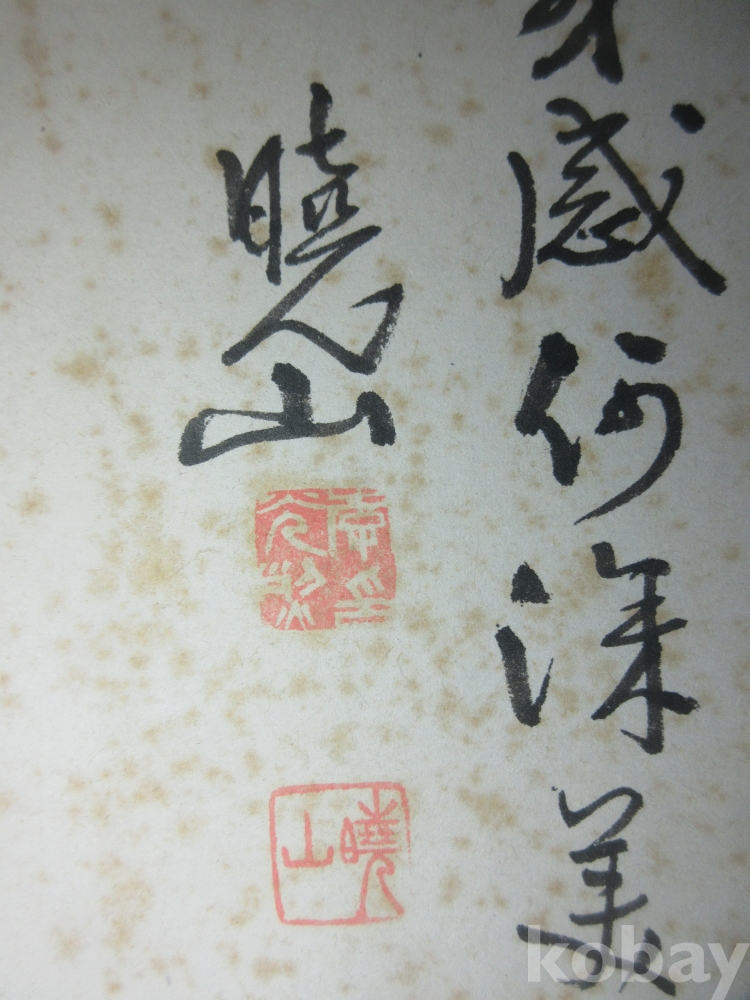 感何深美
曉山
曉山
kobay